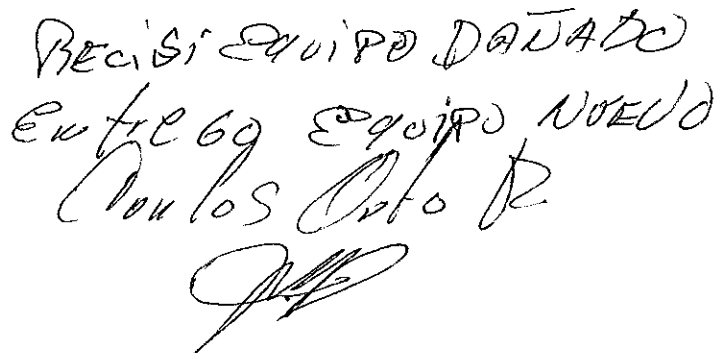 RECiBi EQUiPO DAÑADO
EntREGO EQUiPO NUEVO
Carlos R